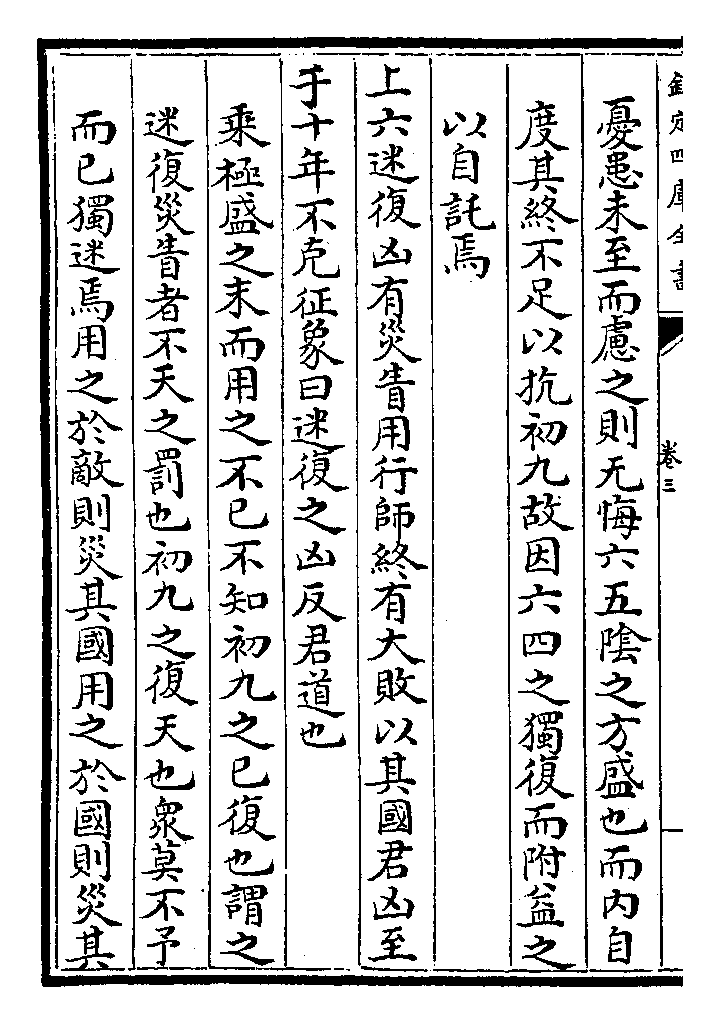 欽定四庫全書
卷三
憂患未至而慮之則无悔六五陰之方盛也而内自
度其終不足以抗初九故因六四之獨復而附益之
以自託焉
上六迷復凶有災眚用行師終有大敗以其國君凶至
于十年不克征象曰迷復之凶反君道也
乘極盛之末而用之不已不知初九之已復也謂之
迷復災眚者不天之罰也初九之復天也衆莫不予
而已獨迷焉用之於敵則災其國用之於國則災其